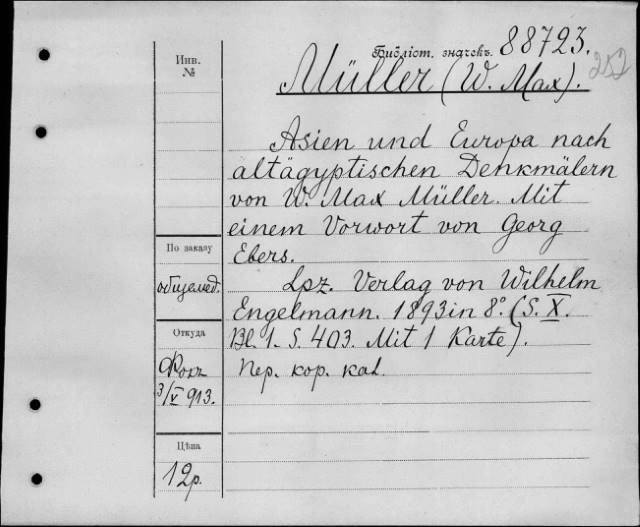 Инв. №
Библіот. значекъ. 88723.
252
Müller (W. Max).
Asien und Europa nach
altägyptischen Denkmälern
von W. Max Müller. Mit
einem Vorwort von Georg
Ebers.
Lpz. Verlag von Wilhelm
Engelmann. 1893 in 8°. (S. X.
Bl. 1. S. 403. Mit 1 Karte).
Пер. кор. кал.
По заказу
общемед.
Откуда
Фокъ
3/V 913.
Цѣна
12р.